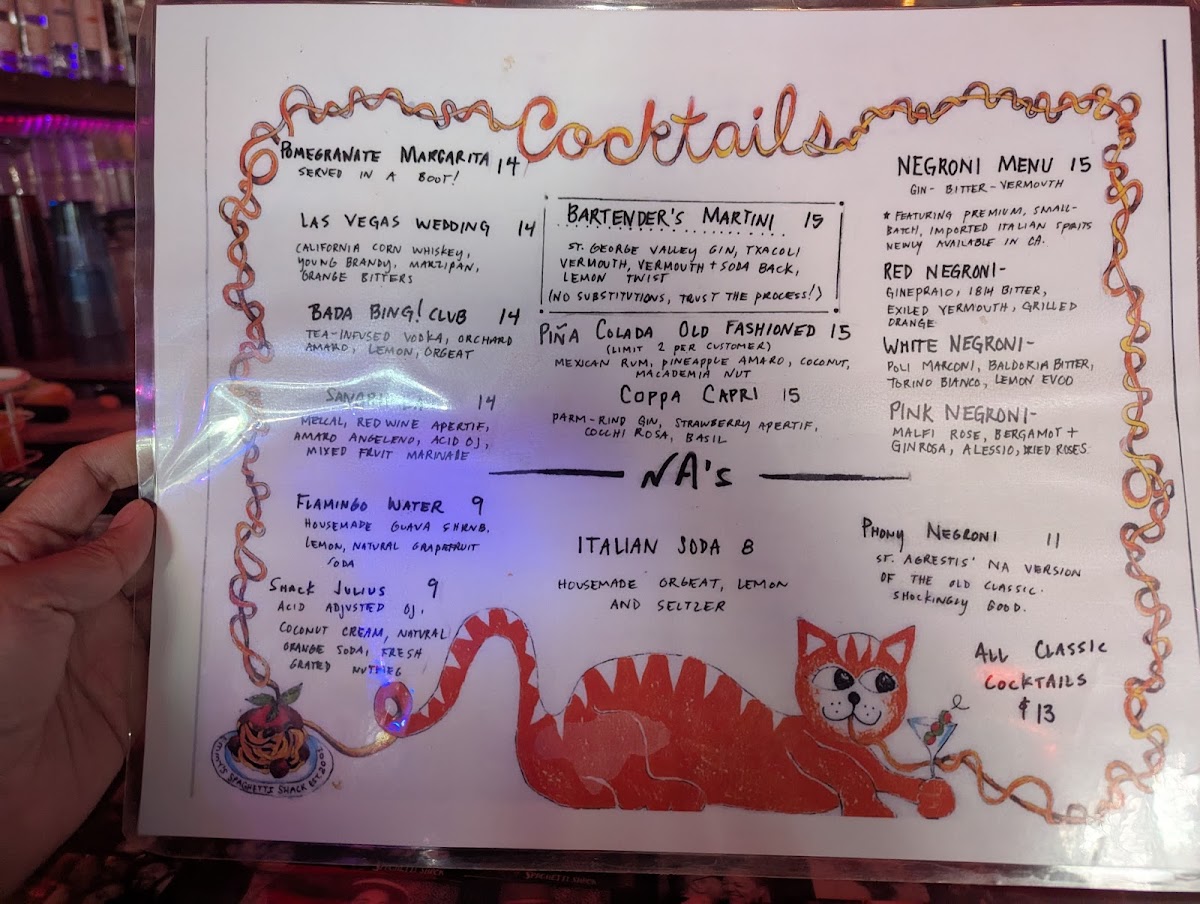 Cocktails
POMEGRANATE MARGARITA 14
SERVED IN A BOOT!
LAS VEGAS WEDDING 14
CALIFORNIA CORN WHISKEY,
YOUNG BRANDY, MARZIPAN,
ORANGE BITTERS
BADA BING! CLUB 14
TEA-INFUSED VODKA, ORCHARD
AMARO, LEMON, ORGEAT
14
MEZCAL, RED WINE APERTIF,
AMARO ANGELENO, ACID OJ,
MIXED FRUIT MARINADE
BARTENDER'S MARTINI 15
ST. GEORGE VALLEY GIN, TXACOLI
VERMOUTH, VERMOUTH + SODA BACK,
LEMON TWIST
(NO SUBSTITUTIONS, TRUST THE PROCESS!)
PIÑA COLADA OLD FASHIONED 15
(LIMIT 2 PER CUSTOMER)
MEXICAN RUM, PINEAPPLE AMARO, COCONUT,
MACADEMIA NUT
COPPA CAPRI 15
PARM-RIND GIN, STRAWBERRY APERTIF,
COCCHI ROSA, BASIL
NEGRONI MENU 15
GIN - BITTER - VERMOUTH
* FEATURING PREMIUM, SMALL-
BATCH, IMPORTED ITALIAN SPIRITS
NEWLY AVAILABLE IN CA.
RED NEGRONI-
GINEPRAIO, 1814 BITTER,
EXILED VERMOUTH, GRILLED
ORANGE
WHITE NEGRONI-
POLI MARCONI, BALDORIA BITTER,
TORINO BIANCO, LEMON EVOO
PINK NEGRONI-
MALFI ROSE, BERGAMOT +
GINROSA, ALESSIO, DRIED ROSES
NA's
FLAMINGO WATER 9
HOUSEMADE GUAVA SHRUB,
LEMON, NATURAL GRAPEFRUIT
SODA
SHACK JULIUS 9
ACID ADJUSTED OJ,
COCONUT CREAM, NATURAL
ORANGE SODA, FRESH
GRATED NUTMEG
ITALIAN SODA 8
HOUSEMADE ORGEAT, LEMON
AND SELTZER
PHONY NEGRONI 11
ST. AGRESTIS' NA VERSION
OF THE OLD CLASSIC.
SHOCKINGLY GOOD.
ALL CLASSIC
COCKTAILS
$13
EMMY'S SPAGHETTI SHACK EST 2001
SPAGHETTI SHACK
SPAGHETTI SHACK